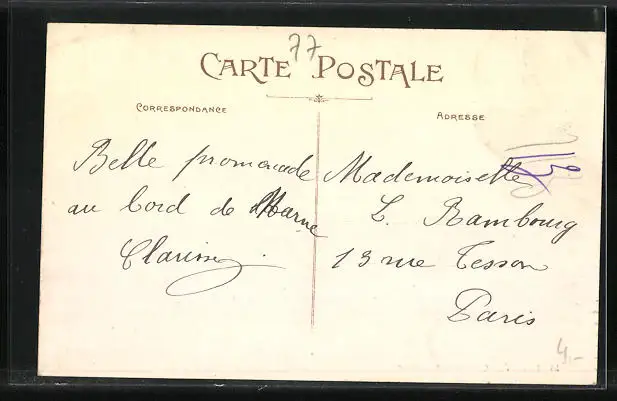 77
CARTE POSTALE
CORRESPONDANCE
ADRESSE
Belle promenade
au bord de Marne
Clarisse
Mademoiselle
L. Rambourg
13 rue Tesson
Paris
4,-